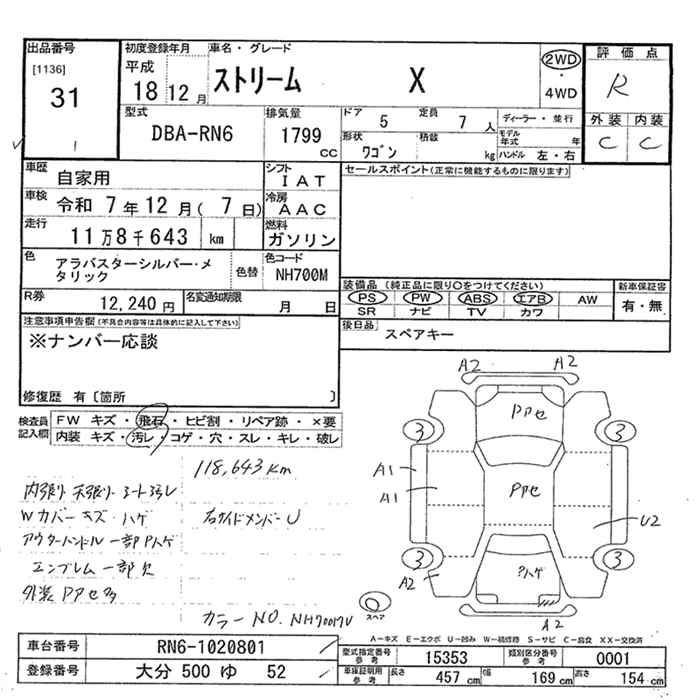 出品番号
[1136]
31
初度登録年月
平成
18 12 月
車名・グレード
ストリーム X
2WD
・
4WD
評価点
R
外装 内装
C C
型式
DBA-RN6
排気量
1799
cc
ドア 5
定員 7 人
形状 ワゴン
積載 kg
ディーラー・並行
モデル年式 年
ハンドル 左・右
車歴 自家用
シフト IAT
車検 令和 7 年 12 月 ( 7 日)
冷房 AAC
走行 11万8千643 km
燃料 ガソリン
色 アラバスターシルバー・メタリック
色替
色コード NH700M
R券 12,240 円
名変通知期限 月 日
セールスポイント(正常に機能するものに限ります)
装備品 (純正品に限り○をつけてください)
PS PW ABS エアB AW
SR ナビ TV カワ
新車保証書
有・無
後日品 スペアキー
注意事項申告欄(不具合内容等は具体的に記入して下さい)
※ナンバー応談
修復歴 有 [箇所 ]
検査員記入欄
FW キズ・飛石・ヒビ割・リペア跡・×要
内装 キズ・汚レ・コゲ・穴・スレ・キレ・破レ
118,643km
内張り 天張り シート汚レ
Wカバーキズ・ハゲ
右サイドメンバーU
アウターハンドル一部Pハゲ
エンブレム一部欠
外装PPセ多
カラーNO. NH700MU
A2 A2
PPセ
3 3
A1
A1
PPセ
U2
3 3
A2
Pハゲ
スペア
A2
A-キズ E-エクボ U-凹み W-補修跡 S-サビ C-腐食 XX-交換済
車台番号 RN6-1020801
登録番号 大分 500 ゆ 52
型式指定番号 参考 15353
類別区分番号 参考 0001
車庫証明用 参考 長さ 457 cm 幅 169 cm 高さ 154 cm